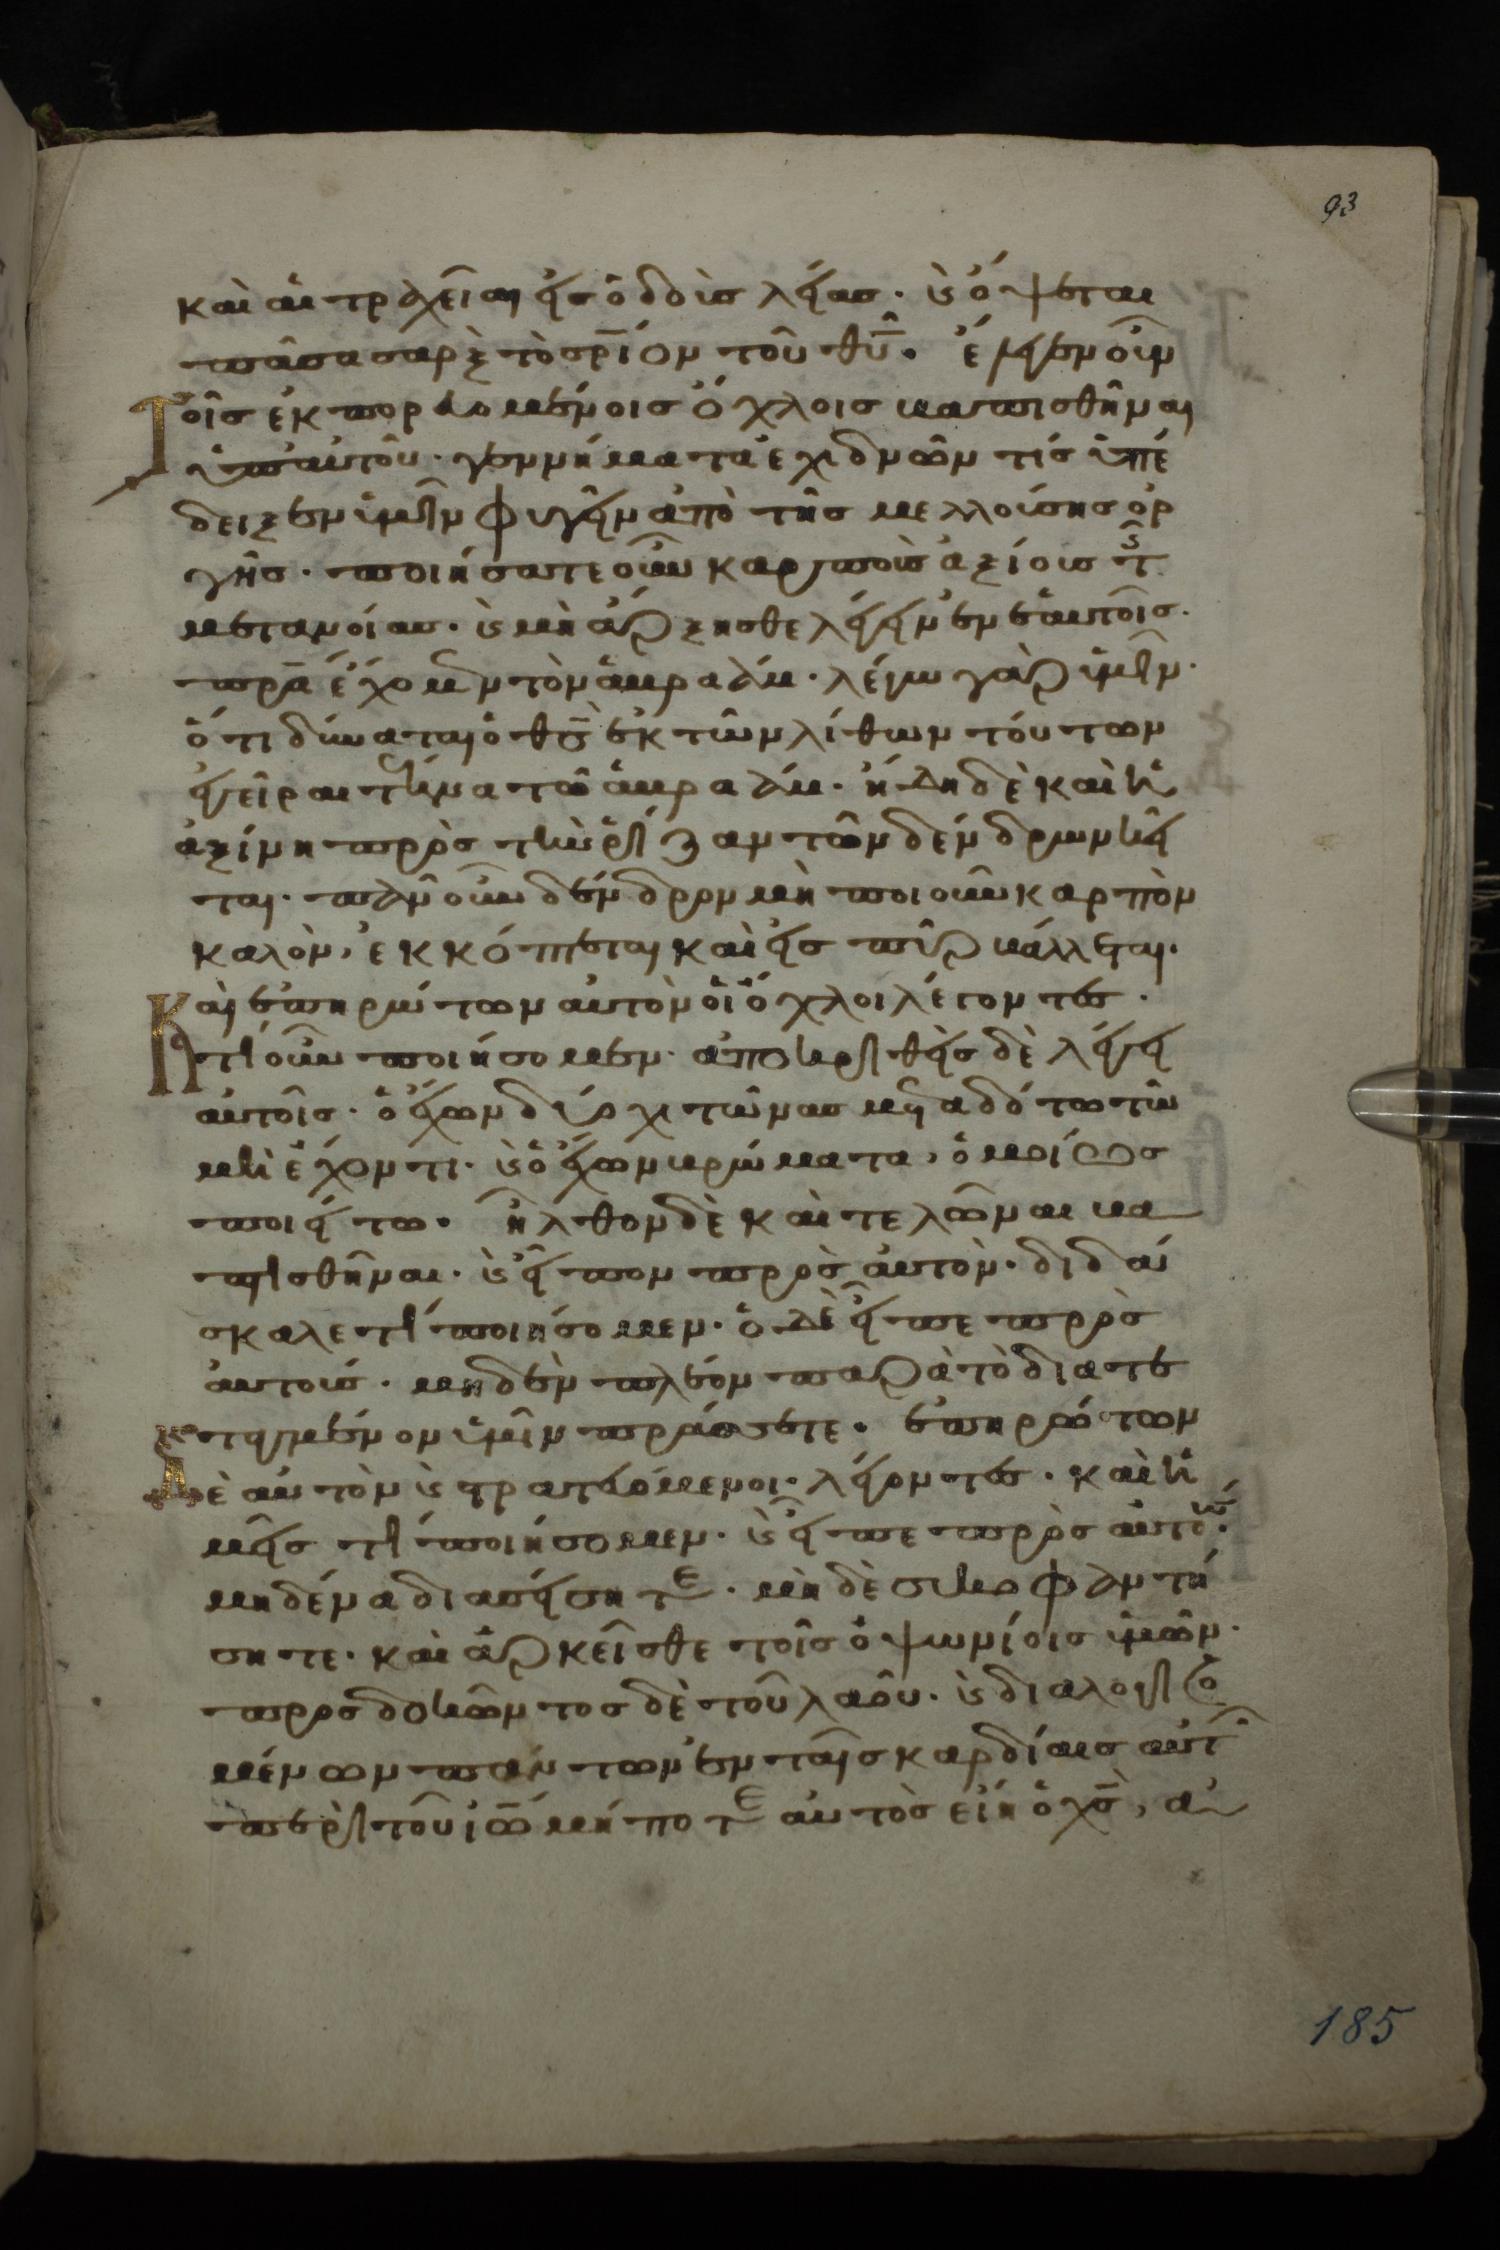 93
καὶ αἱ τραχεῖαι εἰς ὁδοὺς λείας· ϗ ὄψεται
πᾶσα σὰρξ τὸ σρ̅ιον τοῦ θυ̅· ἔλεγεν οὖν
Τοῖς ἐκπορευομένοις ὄχλοις βαπτισθῆναι
ὑπ' αὐτοῦ· γεννήματα ἐχιδνῶν τίς ὑπέ
δειξεν ὑμῖν φυγεῖν ἀπὸ τῆς μελλούσης ὀρ
γῆς· ποιήσατε οὖν καρποὺς ἀξίους τ
μετανοίας· ϗ μὴ ἄρξησθε λέγειν ἐν ἑαυτοῖς·
πρα̅ ἔχομεν τὸν ἀβραάμ· λέγω γὰρ ὑμῖν·
ὅτι δύναται ὁ θς̅ ἐκ τῶν λίθων τούτων
ἐγεῖραι τέκνα τῶ ἀβραάμ· ἤδη δὲ καὶ ἡ
ἀξίνη πρὸς τὴν ῥίζαν τῶν δένδρων κεῖ
ται· πᾶν οὖν δένδρον μὴ ποιοῦν καρπὸν
καλὸν, ἐκκόπτεται καὶ εἰς πῦρ βάλλεται·
Καὶ ἐπηρώτων αὐτὸν οἱ ὄχλοι λέγοντες·
τί οὖν ποιήσομεν· ἀποκριθεὶς δὲ λέγει
αὐτοῖς· ὁ ἔχων δύο χιτῶνας μεταδότω τῶ
μὴ ἔχοντι· ϗ ὁ ἔχων βρώματα, ὁμοίως
ποιείτω· ἦλθον δὲ καὶ τελῶναι βα
πτισθῆναι· ϗ εἶπον πρὸς αὐτὸν· διδά
σκαλε τί ποιήσομεν· ὁ δὲ εἶπε πρὸς
αὐτούς· μηδὲν πλέον παρὰ τὸ διατε
ταγμένον ὑμῖν πράσσετε· ἐπηρώτων
Δὲ αὐτὸν ϗ στρατευόμενοι· λέγοντες· καὶ ἡ
μεῖς τί ποιήσομεν· ϗ εἶπε πρὸς αὐτού·
μηδένα διασείσητε· μὴδὲ συκοφαντή
σητε· καὶ ἀρκεῖσθε τοῖς ὀψωνίοις ὑμῶν·
προσδοκῶντος δὲ τοῦ λαοῦ· ϗ διαλογιζο
μένων πάντων ἐν ταῖς καρδίαις αὐτ
περὶ τοῦ ἰω̅ μήποτε αὐτὸς εἴη ὁ χς̅, ἀ
185